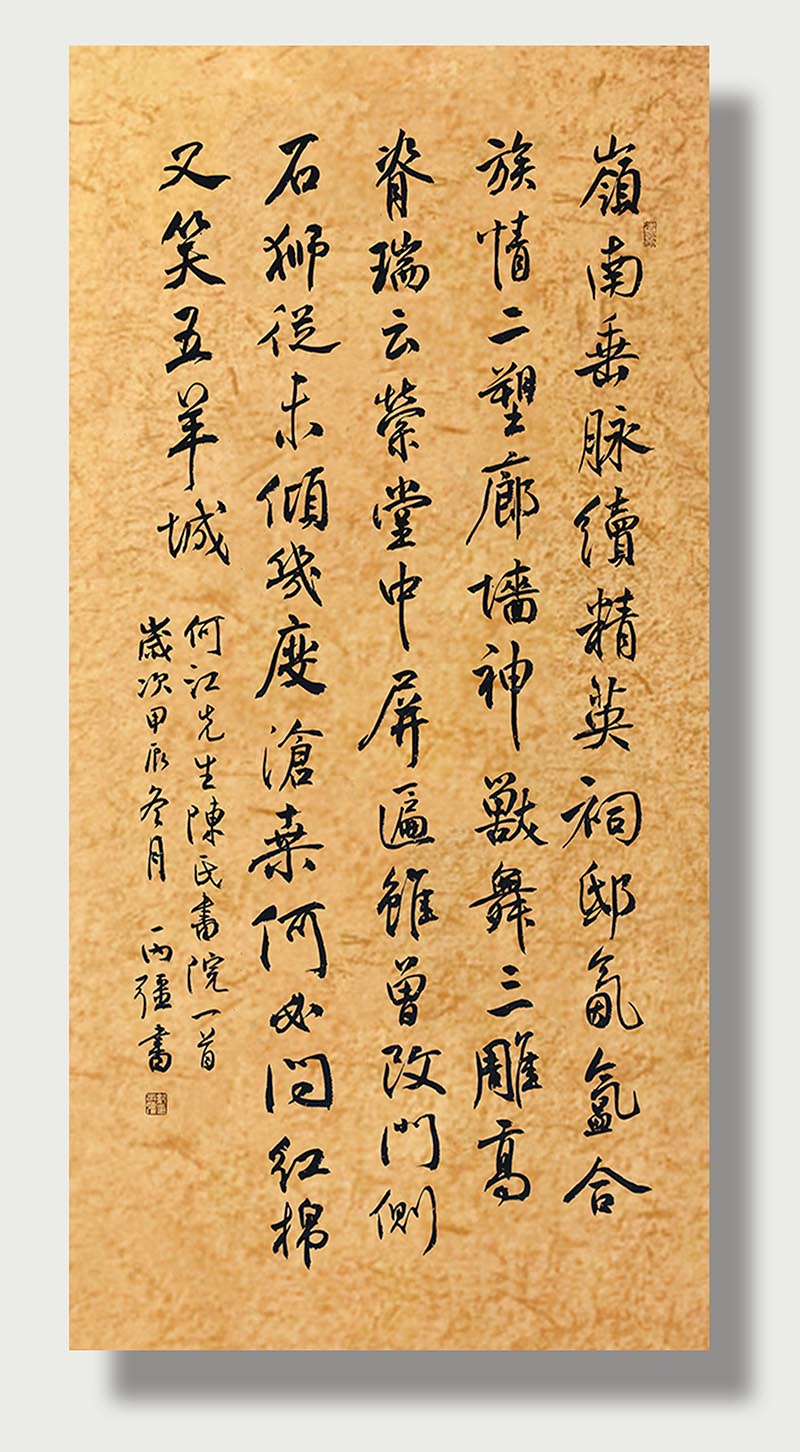 嶺南垂脉續精英祠邸氤氲合
族情二塑廊墻神獸舞三雕高
脊瑞云縈堂中屏匾雖曾改門側
石狮從未傾幾度滄桑何必问红棉
又笑五羊城
何江先生陳氏書院一首
歲次甲辰冬月 丙疆書